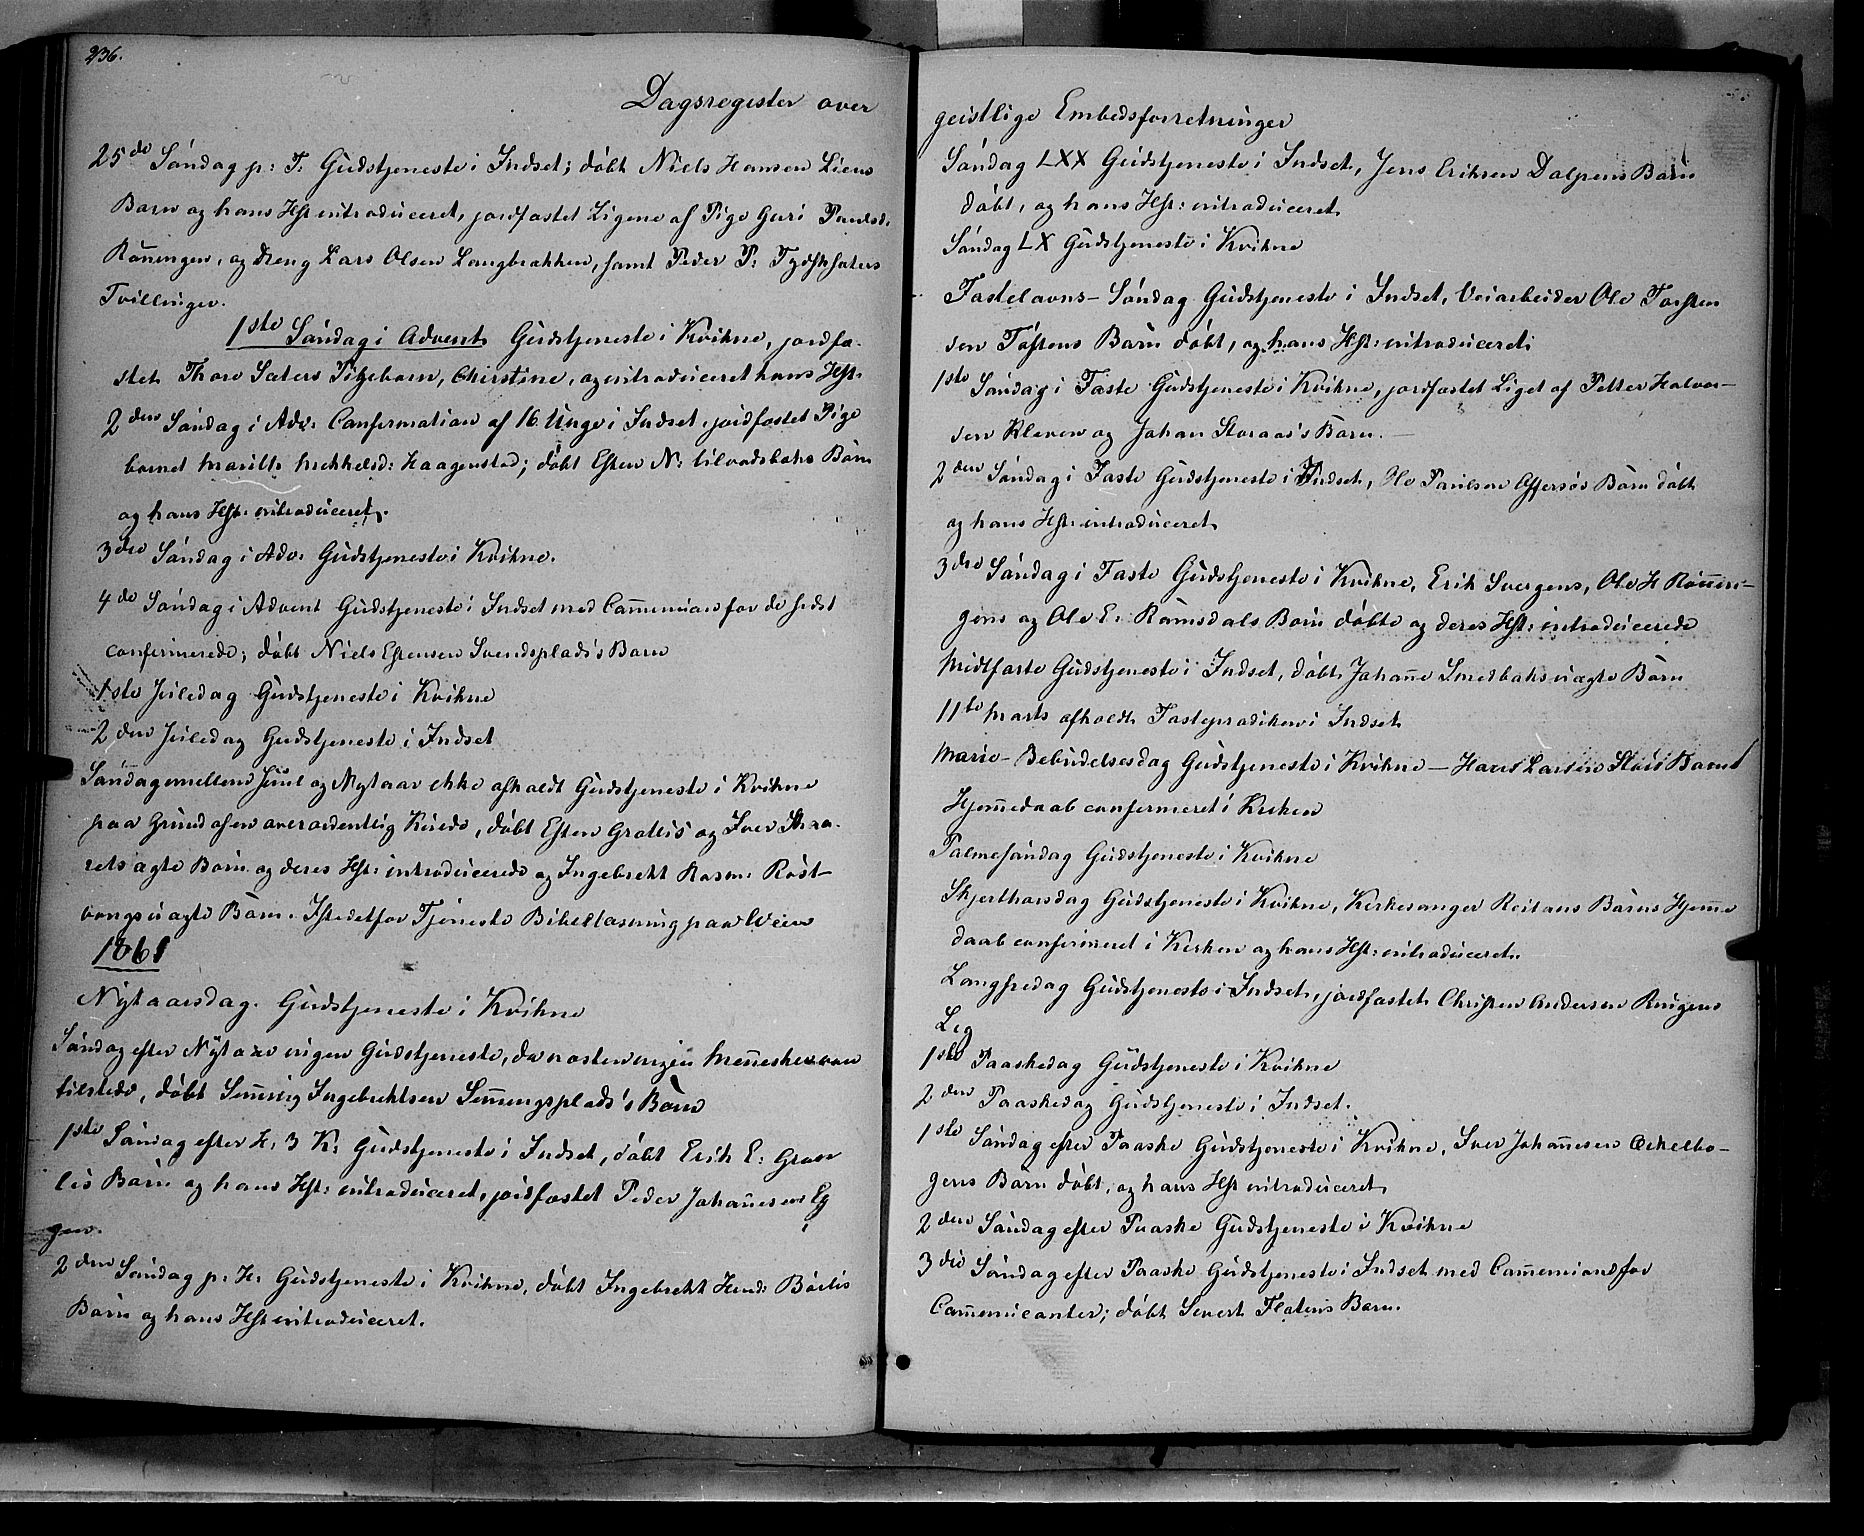 236.
Dagsregister over
25de Søndag p: T: Gudstjeneste i Indset; døbt Niels Hansen Liens
Barn og hans Hst introduceret, jordfæstet Ligene af Pige Guri Paulsd:
Rønningen, og Dreng Lars Olsen Langbrækken, samt Peder P: Tydskesæters
Tvillinger.
1ste Søndag i Advent Gudstjeneste i Kvikne, jordfæ-
stet Thore Sæters Pigebarn, Christine, og introduceret hans Hst.
2den Søndag i Adv: Confirmation af 16 Unge i Indset, jordfæstet Pige
barnet Marith Mikkelsd: Haagenstad; døbt Esten N: Lilvadsbaks Barn
og hans Hst: introduceret.
3die Søndag i Adv: Gudstjeneste i Kvikne.
4de Søndag i Advent Gudstjeneste i Indset med Communion for de sidst
confirmerede; døbt Niels Estensen Svendsplads's Barn
1ste Juledag Gudstjeneste i Kvikne
2den Juledag Gudstjeneste i Indset
Søndag mellem Juul og Nytaar ikke afholdt Gudstjeneste i Kvikne
paa Grund af en overordentlig Kulde, døbt Esten Grøtlis og Iver
ægte Børn og deres Hst: introducerede og Ingebrekt Rasm: Røst-
vangs uægte Barn. Istedetfor Tjeneste Bibellæsning paa Veien
1861
Nytaarsdag. Gudstjeneste i Kvikne
Søndag efter Nytaar ingen Gudstjeneste, da næsten ingen Mennesker var
tilstede, døbt Semming Ingebrektsen Semmingsplads's Barn
1ste Søndag efter H. 3 K: Gudstjeneste i Indset, døbt Erik E: Graa
lis Barn og hans Hst: introduceret, jordfæstet Peder Johannesen Eg
gen.
2den Søndag p: H: Gudstjeneste i Kvikne, døbt Ingebrekt Hend: Børlis
Barn og hans Hst introduceret.
geistlige Embedsforretninger
Søndag LXX Gudstjeneste i Indset, Jens Eriksen Dalsens Barn
døbt, og hans Hst: introduceret
Søndag LX Gudstjeneste i Kvikne
Fastelavns-Søndag Gudstjeneste i Indset, Veiarbeider Ole Torsten
sen Toftens Barn døbt, og hans Hst: introduceret
1ste Søndag i Faste Gudstjeneste i Kvikne, jordfæstet Liget af Petter Halvor-
sen Kleven og Johan Storaas's Barn.
2den Søndag i Faste Gudstjeneste i Indset, Ole Paulsen Affersøs Barn døbt
og hans Hst: introduceret
3die Søndag i Faste Gudstjeneste i Kvikne, Erik Svergens, Ole H Rønnin-
gens og Ole E: Ramsdals Børn døbte og deres Hst: introducerede
Midtfaste Gudstjeneste i Indset, døbt Johanne Smedbaks uægte Barn
11te Marts afholdt Fasteprædiken i Indset
Marie-Bebudelsesdag Gudstjeneste i Kvikne - Hans Larsen Støis Barns
Hjemmedaab confirmeret i Kirken
Palmesøndag Gudstjeneste i Kvikne
Skjærthorsdag Gudstjeneste i Kvikne, Kirkesanger Reitans Barns Hjemme
daab confirmeret i Kirken og hans Hst: introduceret.
Langfredag Gudstjeneste i Indset, jordfæstet Christen Andersen Ringens
Lig
1ste Paaskedag Gudstjeneste i Kvikne
2den Paaskedag Gudstjeneste i Indset.
1ste Søndag efter Paaske Gudstjeneste i Kvikne, Iver Johannesen Ørkelbo-
gens Barn døbt, og hans Hst introduceret
2den Søndag efter Paaske Gudstjeneste i Kvikne
3die Søndag efter Paaske Gudstjeneste i Indset med Communion for
Communicanter; døbt Sivert Flatens Barn.